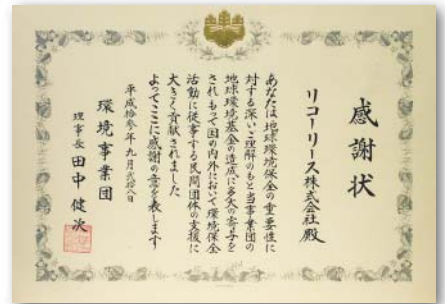 感謝状
リコーリース株式会社殿
あなたは地球環境保全の重要性に
対する深いご理解のもと当事業団の
地球環境基金の造成に多大の寄与を
されもって国の内外において環境保全
活動に従事する民間団体の支援に
大きく貢献されました
よってここに感謝の意を表します
平成拾参年九月弐拾八日
環境事業団
理事長 田中健次